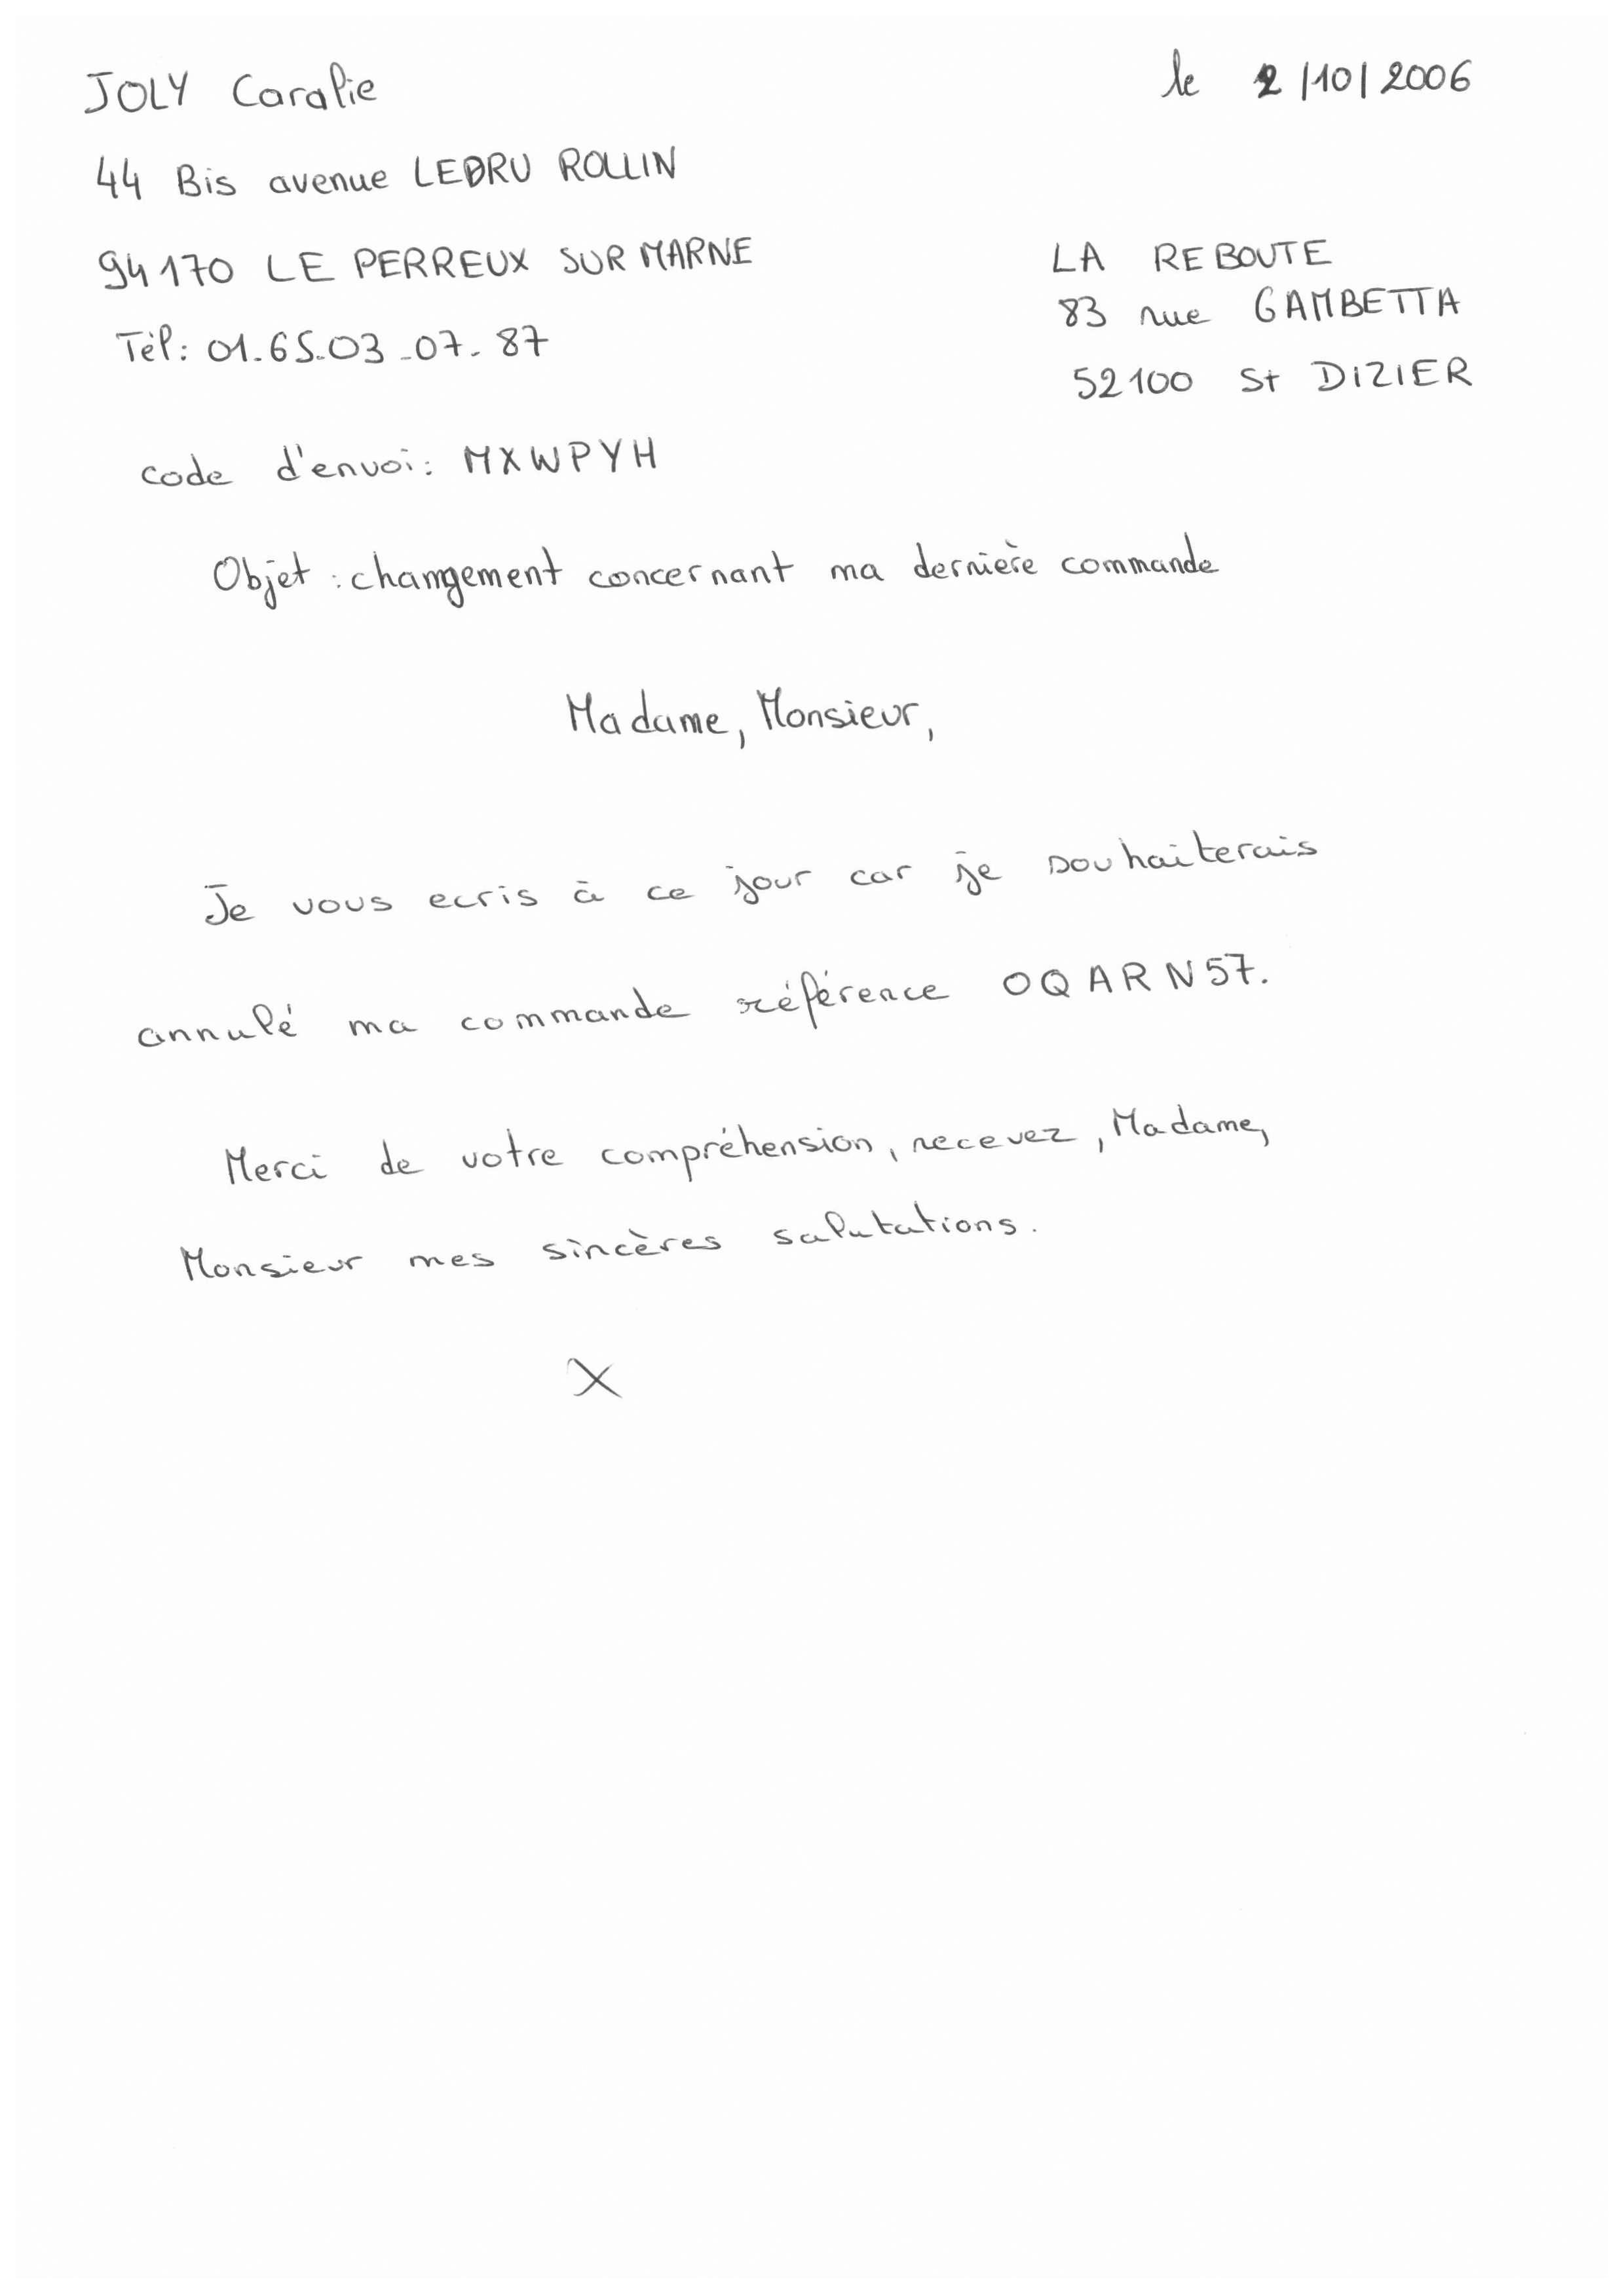 JOLY Coralie
le 2/10/2006
44 Bis avenue LEDRU ROLLIN
94170 LE PERREUX SUR MARNE
Tél: 01.65.03-07-87
LA REBOUTE
83 rue GAMBETTA
52100 St DIZIER
code d'envoi: MXWPYH
Objet : changement concernant ma dernière commande
Madame, Monsieur,
Je vous ecris à ce jour car je souhaiterais
annulé ma commande référence OQARN57.
Merci de votre compréhension, recevez, Madame,
Monsieur mes sincères salutations.
X